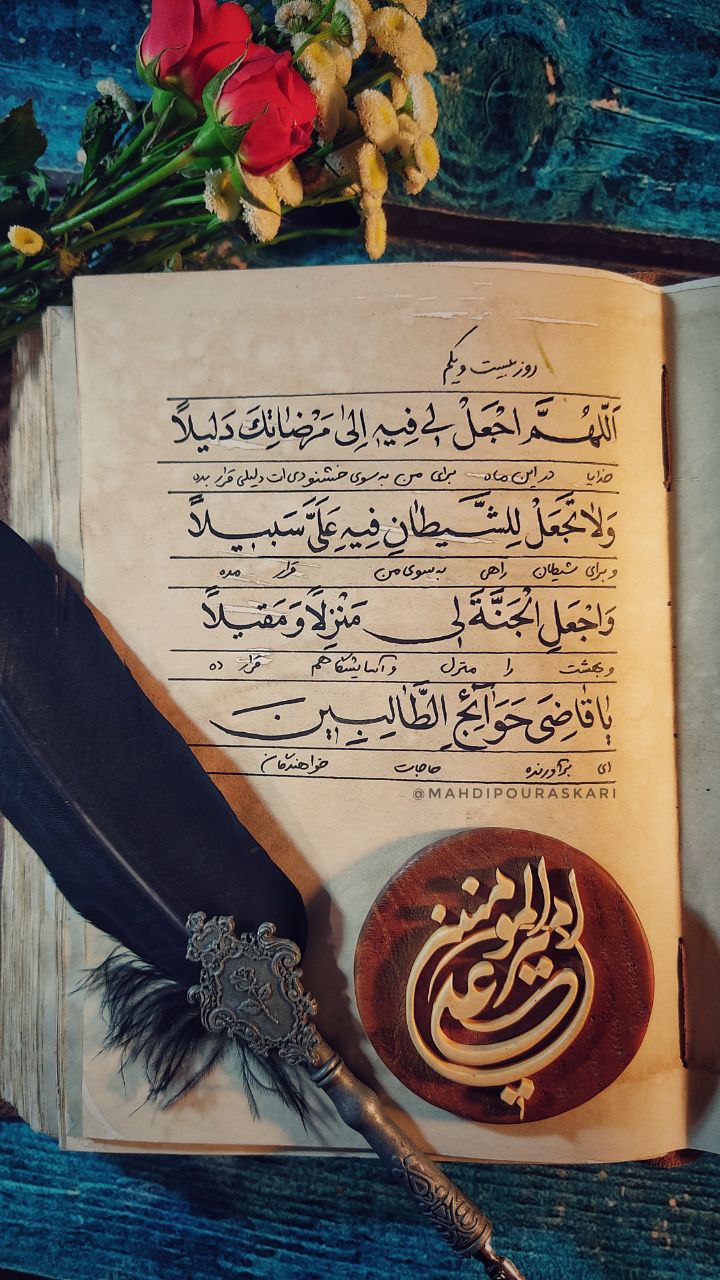 روز بیست و یکم
اَللّٰهُمَّ اجْعَلْ لِی فِیهِ اِلیٰ مَرْضٰاتِكَ دَلیلاً
خدایا در این ماه برای من به سوی خشنودی ات دلیلی قرار بده
وَلاٰ تَجْعَلْ لِلشَّیْطٰانِ فِیهِ عَلَیَّ سَبیلاً
و برای شیطان راهی به سوی من قرار مده
وَاجْعَلِ الْجَنَّةَ لی مَنْزِلًا وَ مَقیلاً
و بهشت را منزل و آسایشگاهم قرار ده
یٰا قٰاضِیَ حَوٰائِجِ الطّٰالِبینَ
ای برآورنده حاجات خواهندگان
@MAHDIPOURASKARI
امیر المومنین
علی